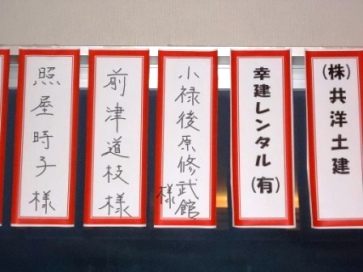 (株)共洋土建
幸建レンタル(有)
小禄後原修武館様
前津道枝様
照屋時子様